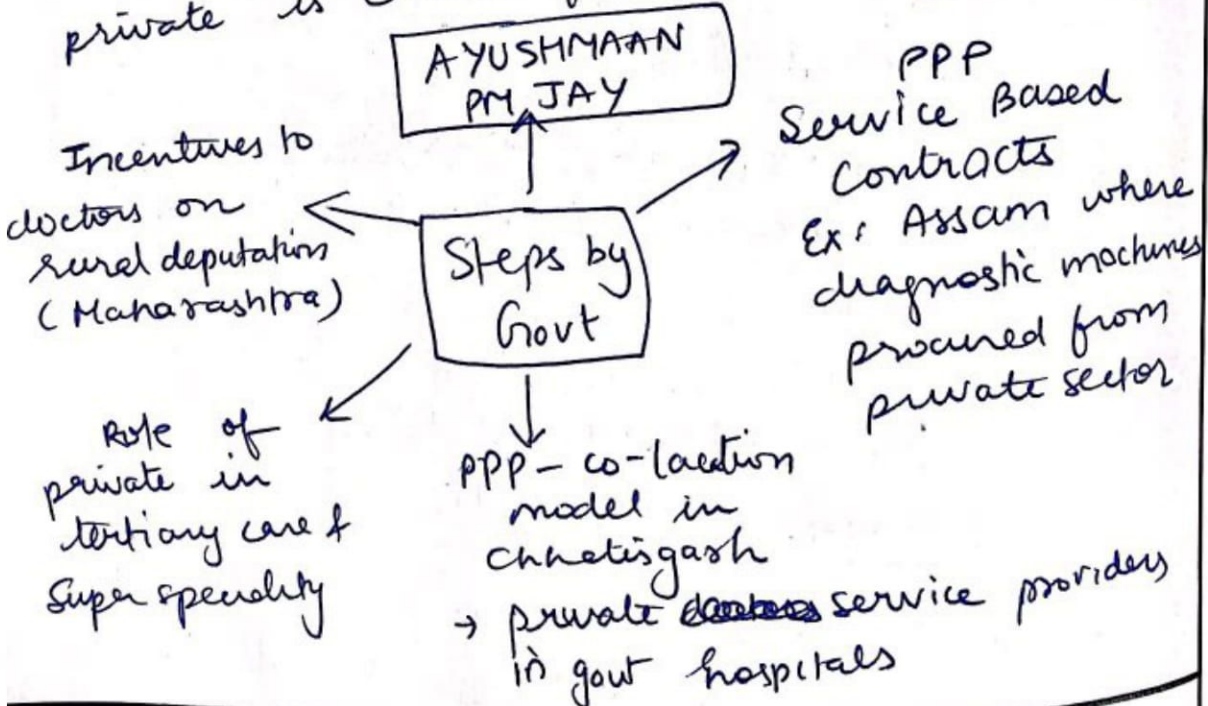 private is
AYUSHMAAN
PM JAY
Incentives to
doctors on
rural deputation
(Maharashtra)
PPP
Service Based
Contracts
Ex: Assam where
diagnostic machines
procured from
private sector
Steps by
Govt
Role of
private in
tertiary care &
Super speciality
PPP - co-location
model in
Chhatisgarh
→ private service providers
in govt hospitals